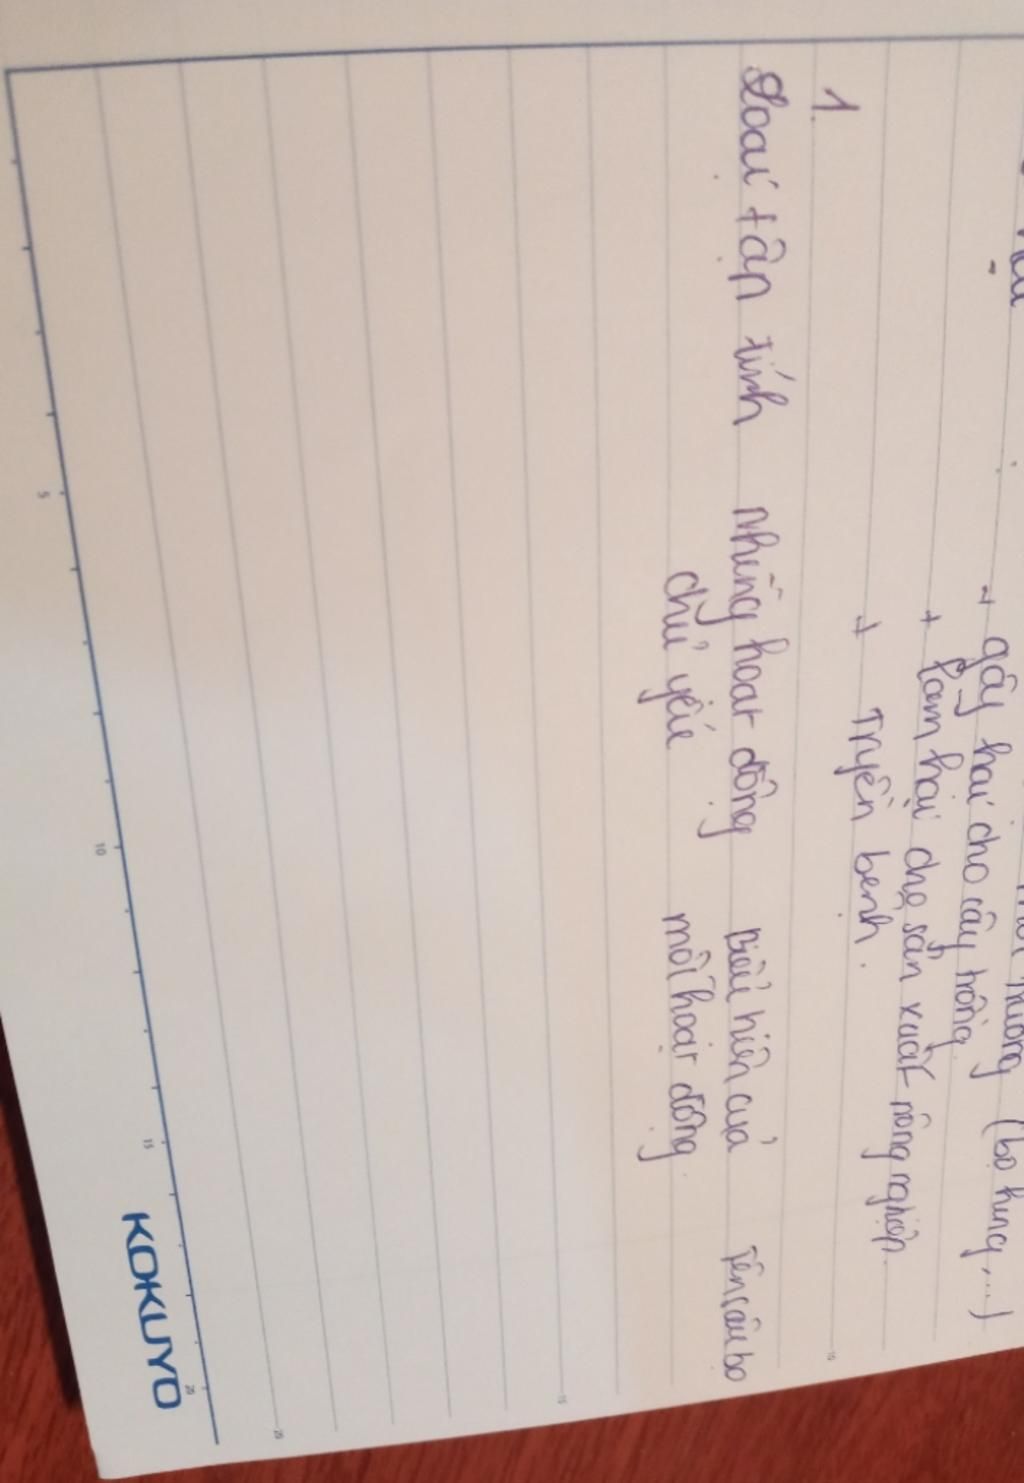 môi trường (bọ hung,...)
- gây hại cho cây trồng
+ làm hại cho sản xuất nông nghiệp.
+ Truyền bệnh.
1.
Loại tập tính những hoạt động Biểu hiện của Tên sâu bọ
chủ yếu mỗi hoạt động.
5 10 15 20
KOKUYO